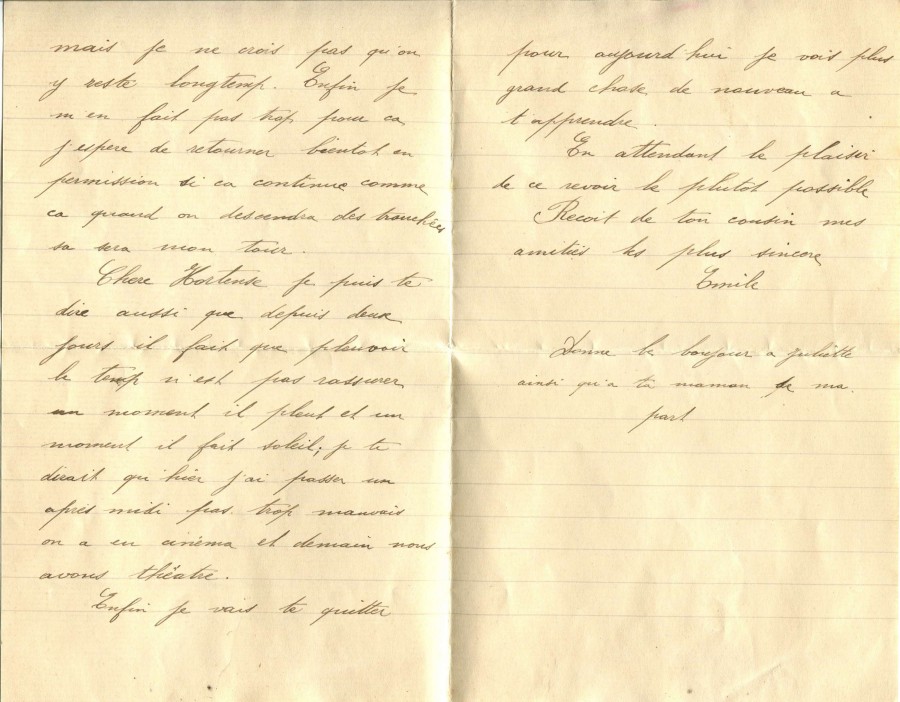 mais je ne crois pas qu'on
y reste longtemp. Enfin je
m'en fait pas trop pour ca
j'espere de retourner bientot en
permission si ca continue comme
ca quand on descendra des tranchées
sa sera mon tour.
Chere Hortense je puis te
dire aussi que depuis deux
jours il fait que pleuvoir
le temp n'est pas rassurer
un moment il pleut et un
moment il fait soleil; je te
dirait qu'hier j'ai passer un
après midi pas trop mauvais
on a eu cinéma et demain nous
avons théatre.
Enfin je vais te quitter
pour aujourd'hui je vois plus
grand chose de nouveau a
t'apprendre.
En attendant le plaisir
de ce revoir le plutot possible
Recoit de ton cousin mes
amitiés les plus sincere
Emile
Donne le bonjour a juliette
ainsi qu'a ta maman de ma
part